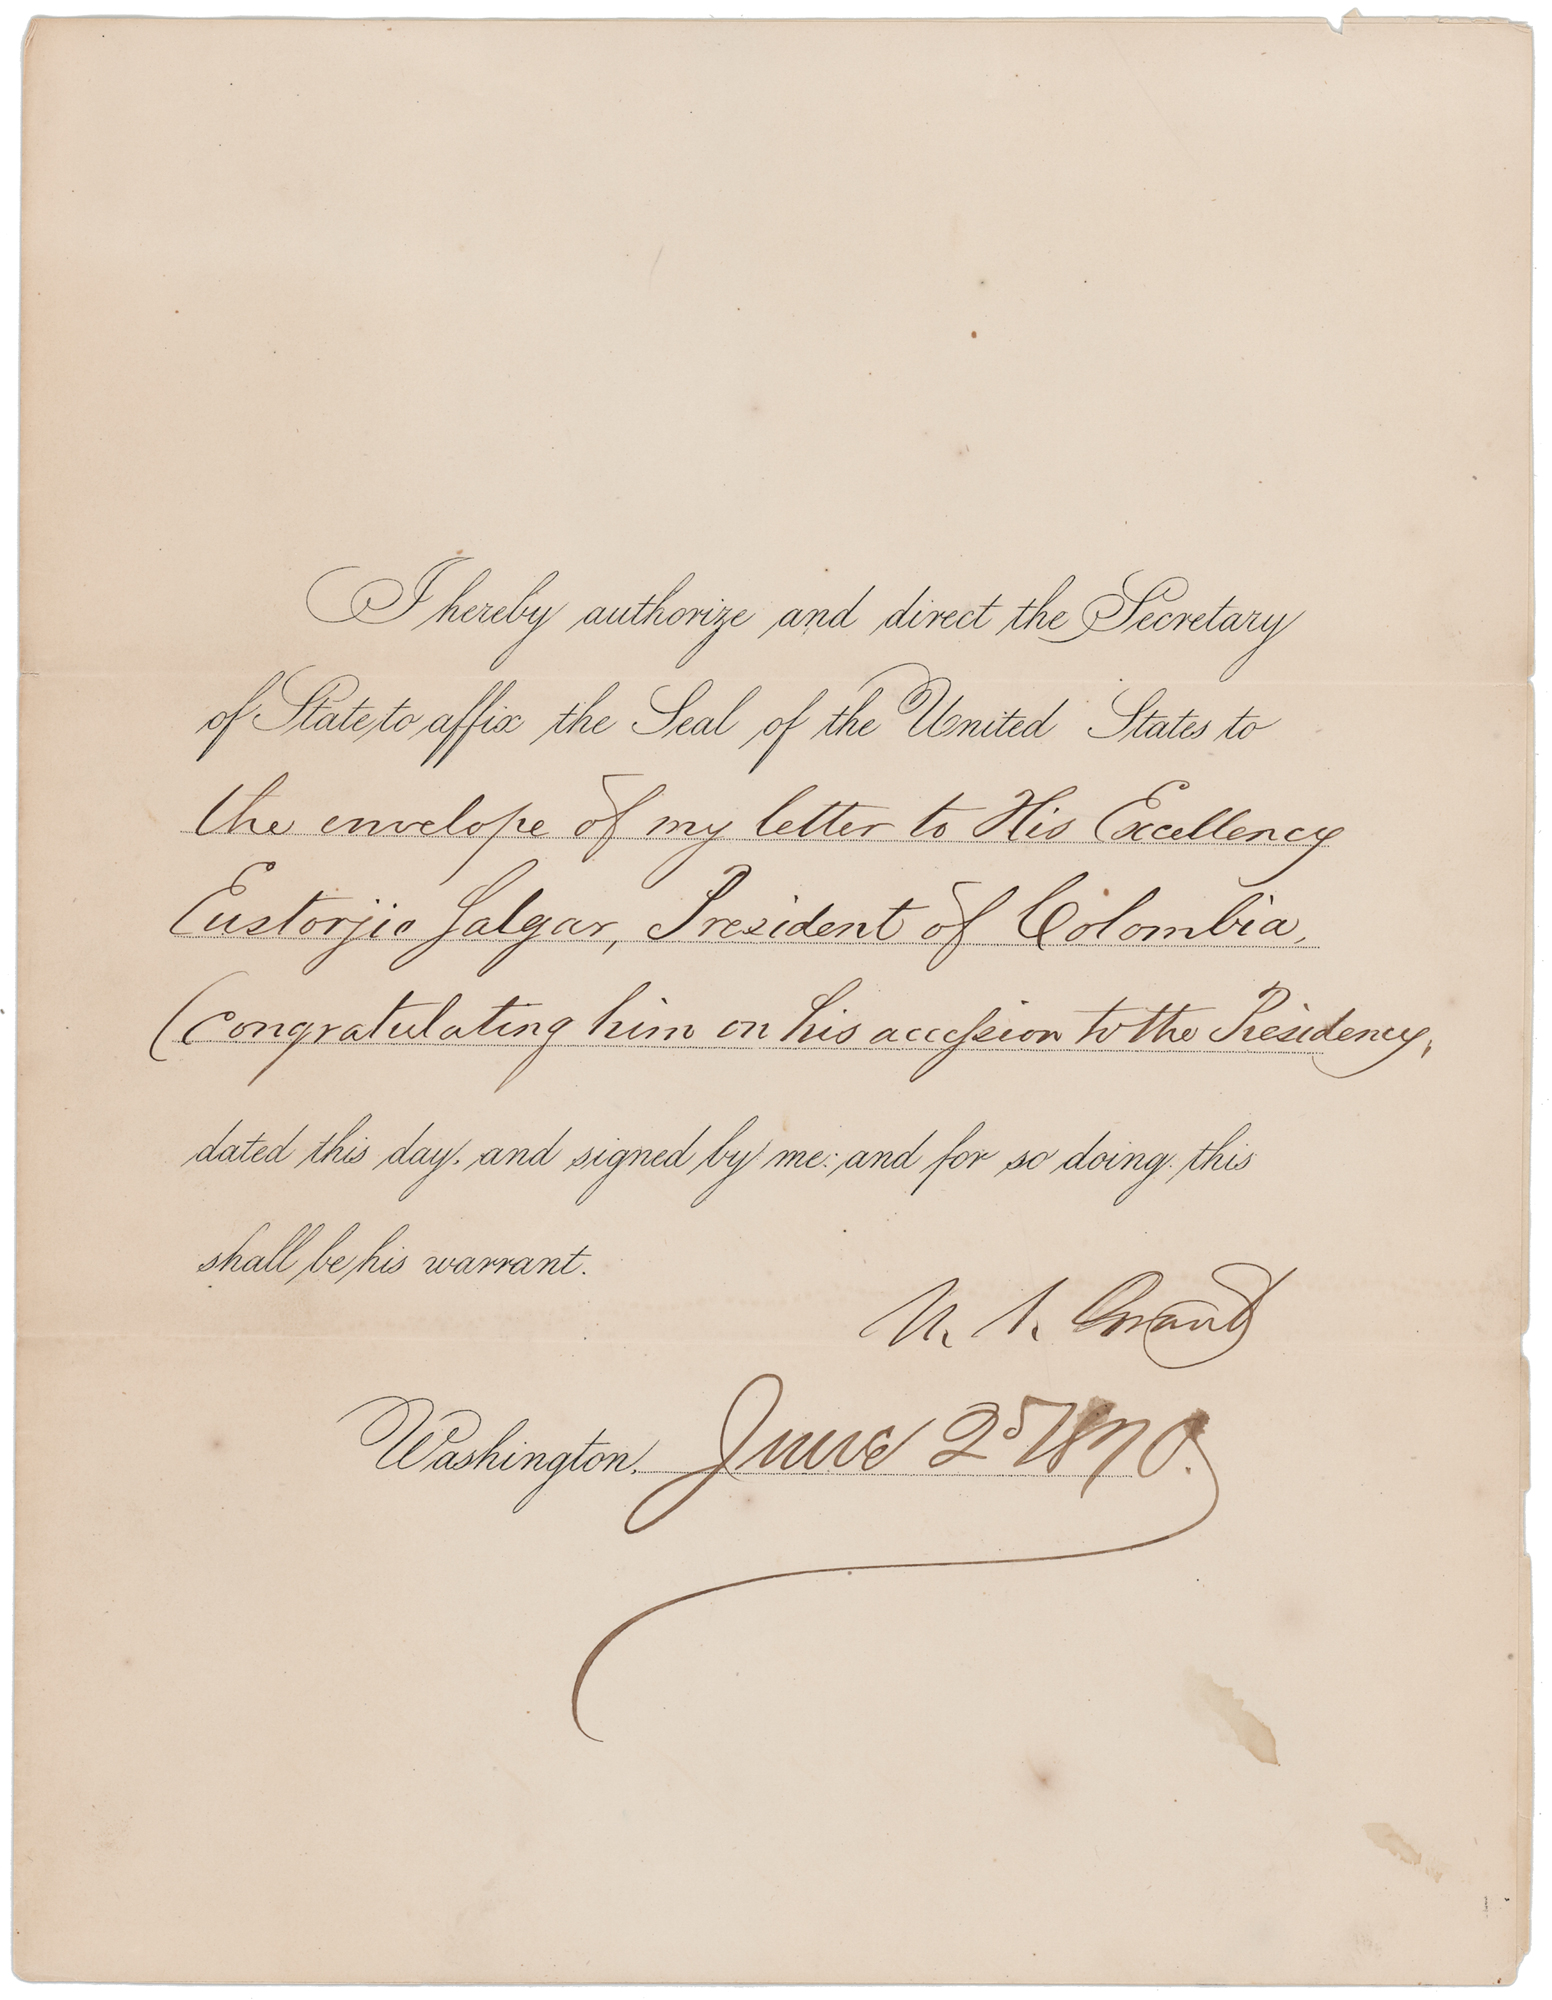 I hereby authorize and direct the Secretary
of State to affix the Seal of the United States to
the envelope of my letter to His Excellency
Eustorjio Salgar, President of Colombia,
(congratulating him on his accession to the Presidency,
dated this day, and signed by me: and for so doing this
shall be his warrant.
U. S. Grant
Washington, June 2d 1870.